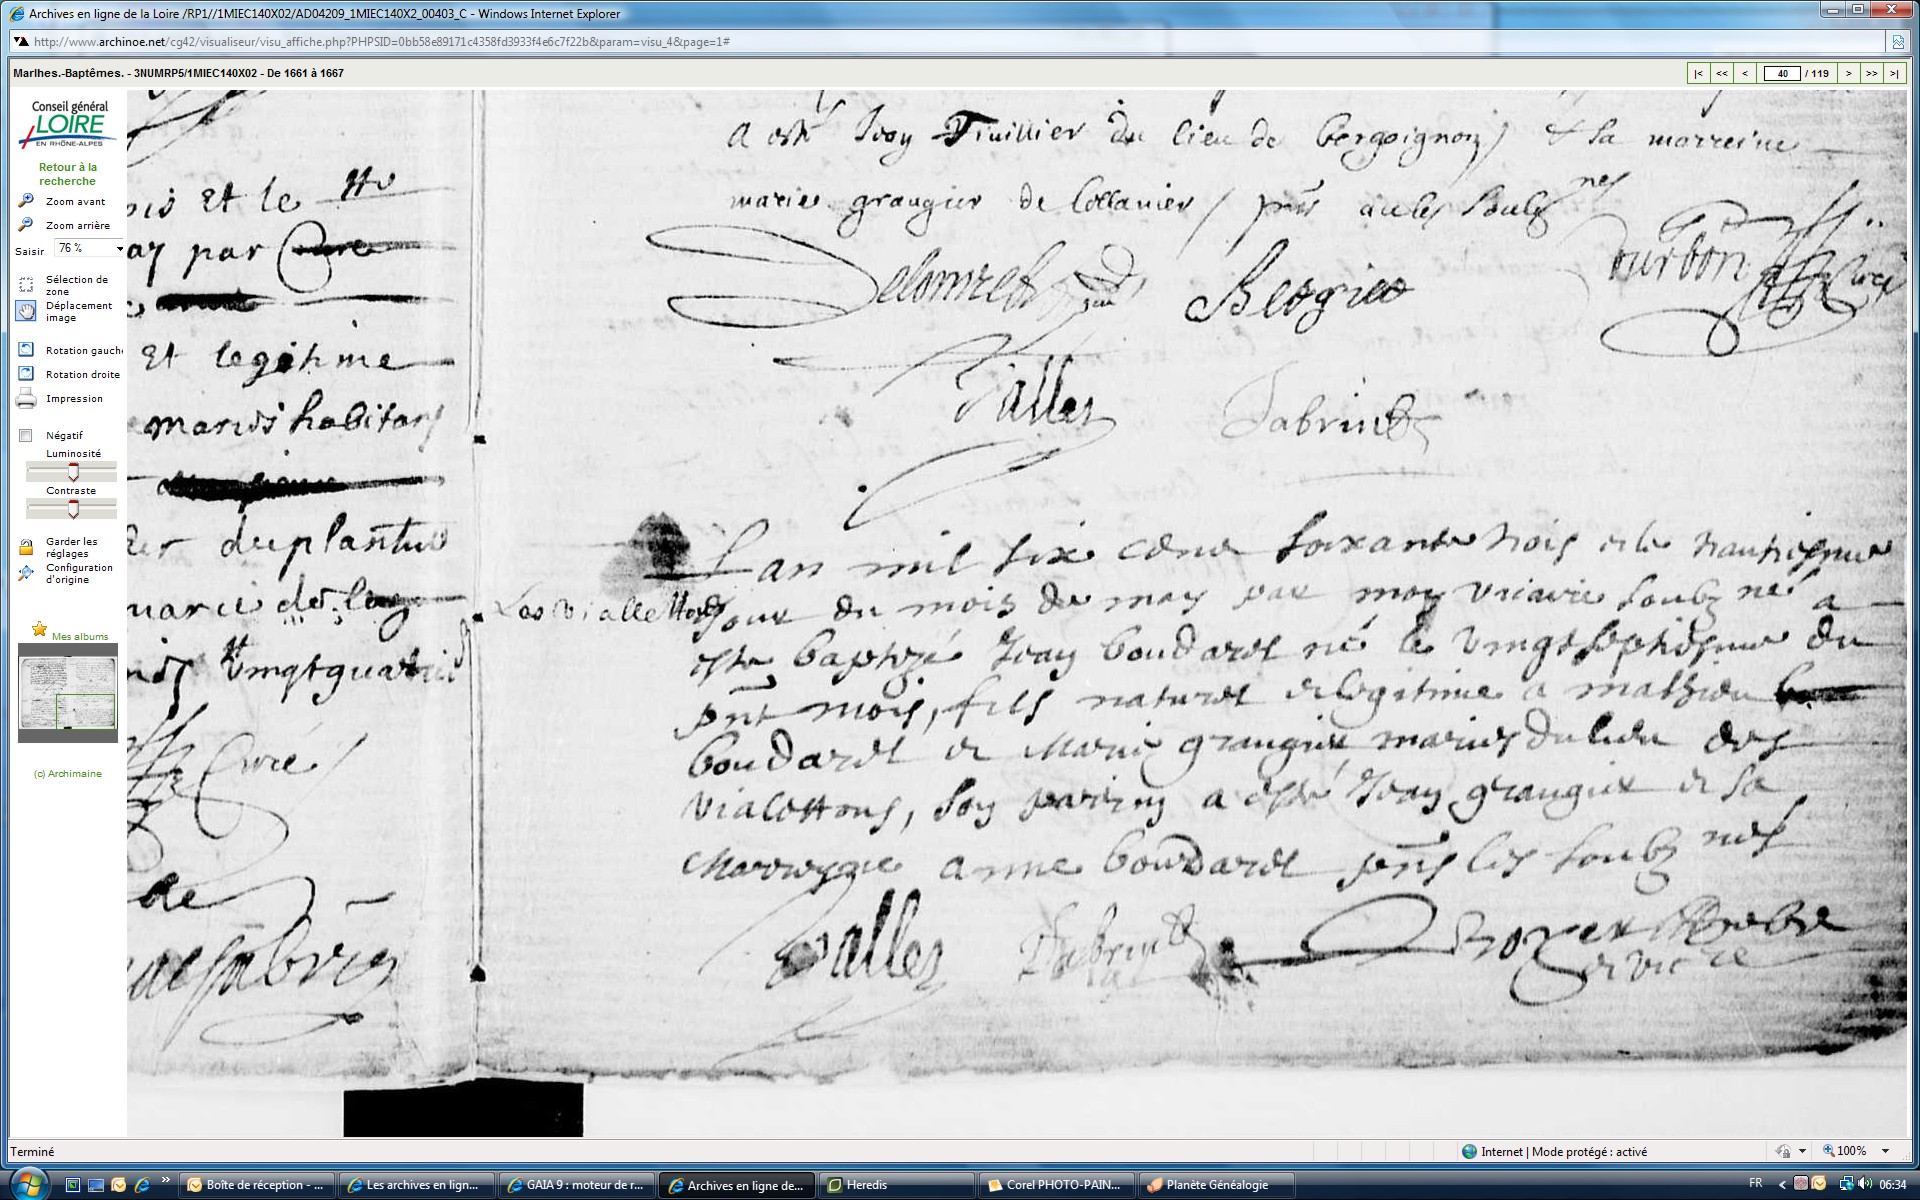 Archives en ligne de la Loire /RP1//1MIEC140X02/AD04209_1MIEC140X2_00403_C - Windows Internet Explorer
http://www.archinoe.net/cg42/visualiseur/visu_affiche.php?PHPSID=0bb58e89171c4358fd3933f4e6c7f22b&param=visu_4&page=1#
Marlhes.-Baptêmes. - 3NUMRP5/1MIEC140X02 - De 1661 à 1667
|< << < 40 / 119 > >> >|
Conseil général
LOIRE
EN RHÔNE-ALPES
Retour à la
recherche
Zoom avant
Zoom arrière
Saisir 76 %
Sélection de
zone
Déplacement
image
Rotation gauch
Rotation droite
Impression
Négatif
Luminosité
Contraste
Garder les
réglages
Configuration
d'origine
Mes albums
(c) Archimaine
et le
par
Et legitime
maries habitans
duplantier
marie de
vingtquatri
Curé
de
a esté Jean du lieu de bergoignon & sa marreine
marie grangier de Collanier
Bergier
Vialler
Fabrier
Lan mil six cens soixante trois et le trantiesme
Les viallettons
Jour du mois de may par moy vicaire soubz né a
esté baptizé Jean boudarel né le vingtseptiesme du
pnt mois, fils naturel et legitime a mathieu
boudarel et Marie grangier maries du lieu des
vialettons, son parrin a esté Jean grangier et sa
Marreyne anne boudarel pens les soubz nes
Vialler
et vicre
Terminé
Internet | Mode protégé : activé
100%
Boîte de réception - ...
Les archives en lign...
GAIA 9 : moteur de r...
Archives en ligne de...
Heredis
Corel PHOTO-PAIN...
Planète Généalogie
FR
06:34